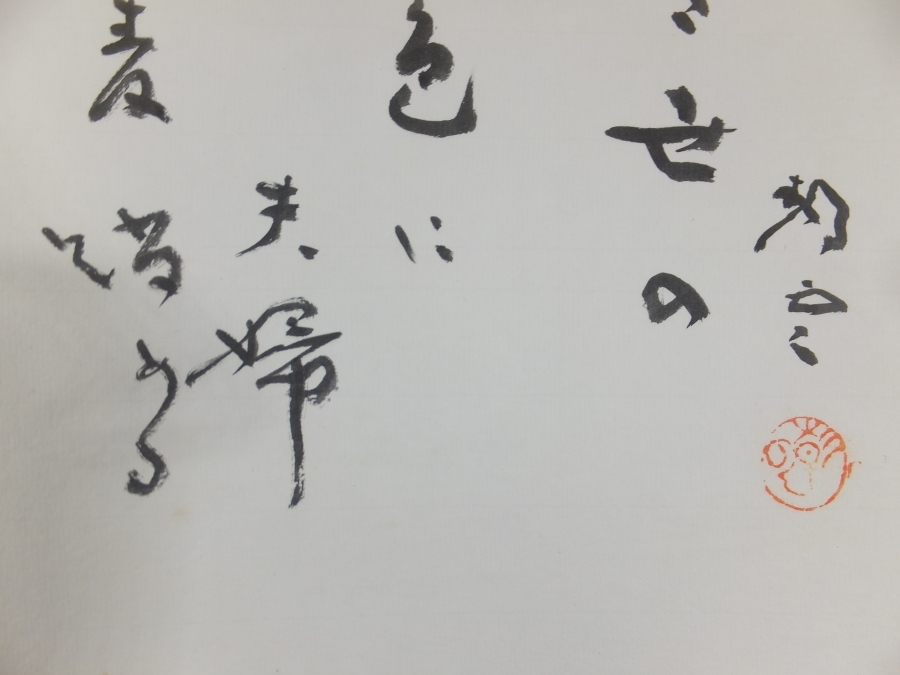 世の
色に
夫婦
麦踏める